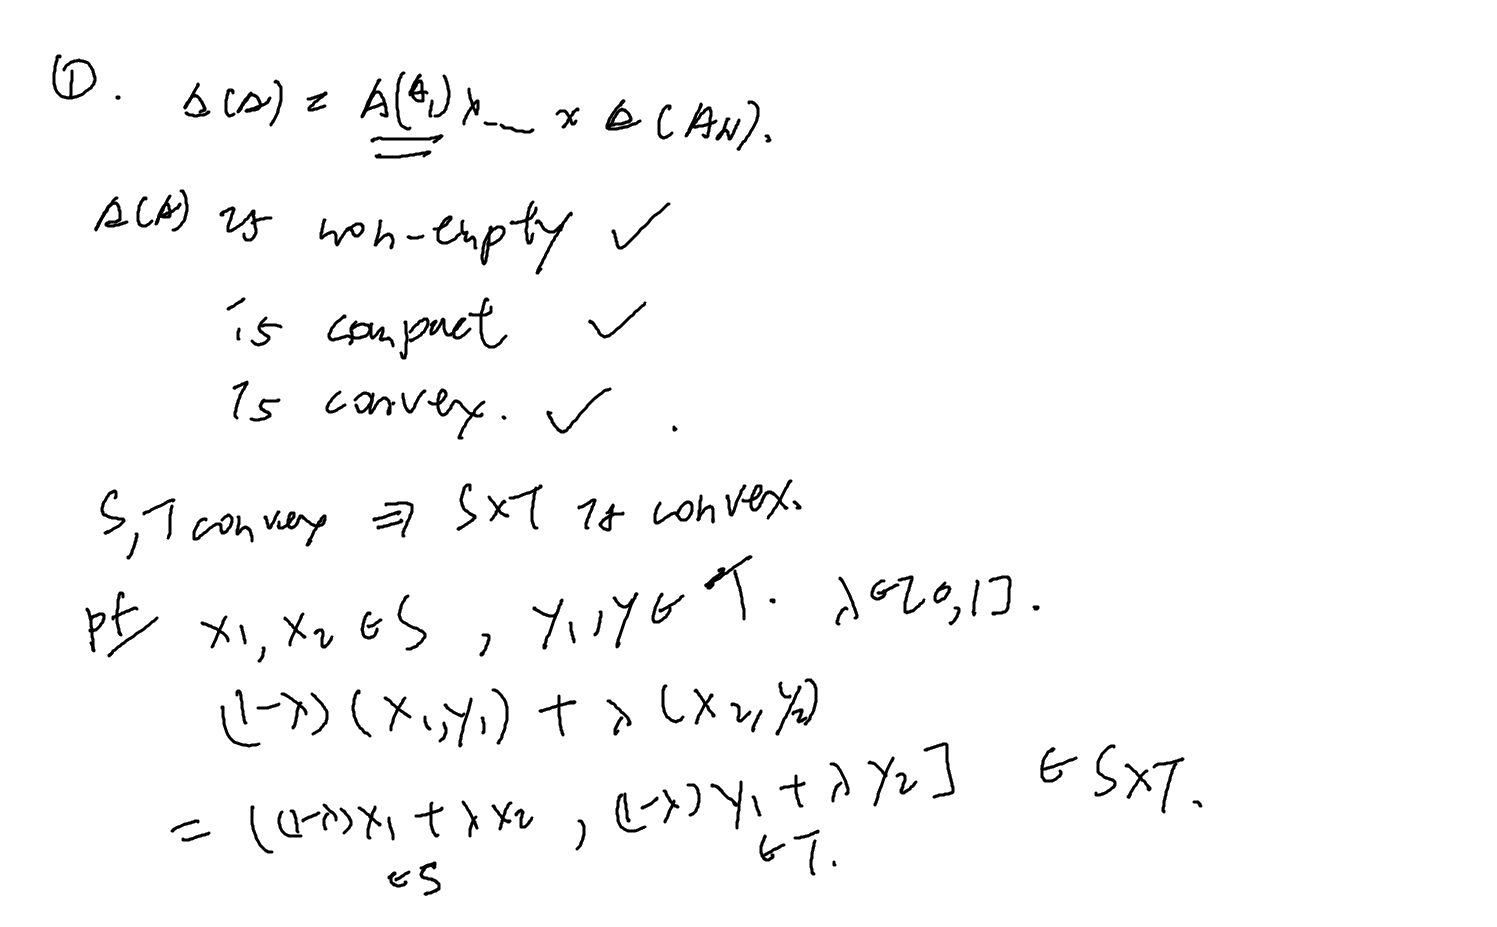 ①. Δ(A) = Δ(A₁) x ... x Δ(A_N).
Δ(A) is non-empty ✓
is compact ✓
is convex. ✓ .
S, T convex ⇒ S×T is convex.
pf x₁, x₂ ∈ S, y₁, y ∈ T. λ ∈ [0,1].
(1-λ)(x₁,y₁) + λ(x₂,y₂)
= ((1-λ)x₁ + λx₂, (1-λ)y₁ + λy₂] ∈ S×T.
∈S ∈T.